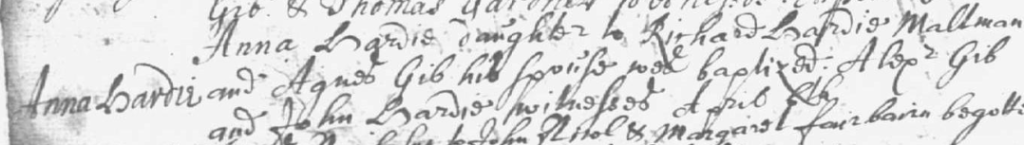 Gib & Thomas Gardner
Anna Hardie daughter to Richard Hardie Maltman
Anna Hardie and Agnes Gib his spouse wes baptized; Alexr Gib
and John Hardie witnesses April
to John Nicol & Margaret fairbairn begotte